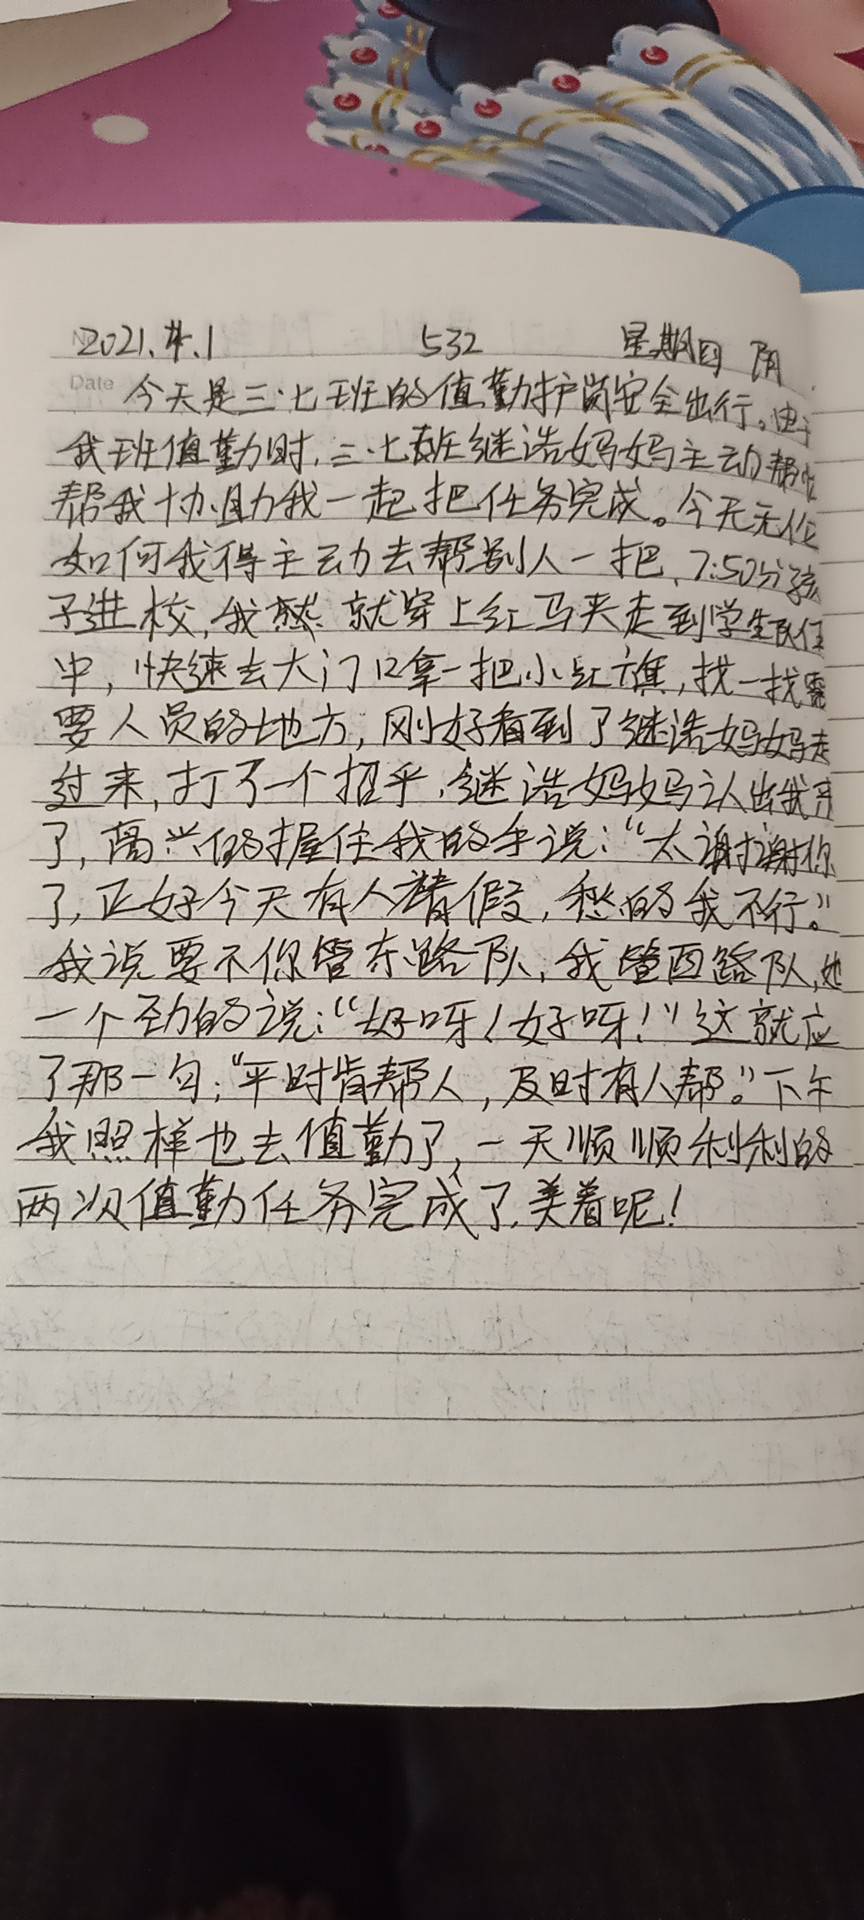 2021.4.1 532 星期四 阴
Date 今天是三·七班的值勤护岗安全出行。由于
我班值勤时,三·七班继浩妈妈主动帮忙
帮我协助我一起把任务完成。今天无论
如何我得主动去帮别人一把,7:50分孩
子进校,我就穿上红马夹走到学生队伍
中,快速去大门口拿一把小红旗,找一找需
要人员的地方,刚好看到了继浩妈妈走
过来,打了一个招乎,继浩妈妈认出我来
了,高兴的握住我的手说:“太谢谢你
了,正好今天有人请假,愁的我不行。”
我说要不你管东路队,我管西路队,她
一个劲的说:“好呀!好呀!”这就应
了那一句:“平时肯帮人,及时有人帮。”下午
我照样也去值勤了,一天顺顺利利的
两次值勤任务完成了,美着呢!